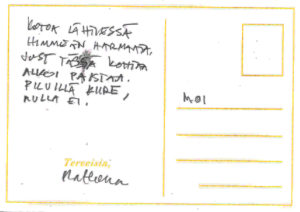 KOTOA LÄHTIESSÄ
HIMMEÄN HARMAATA,
JUST TÄSSÄ KOHTAA
ALKOI PAISTAA.
PILVILLÄ KIIRE,
MULLA EI.
Terveisin,
MOI